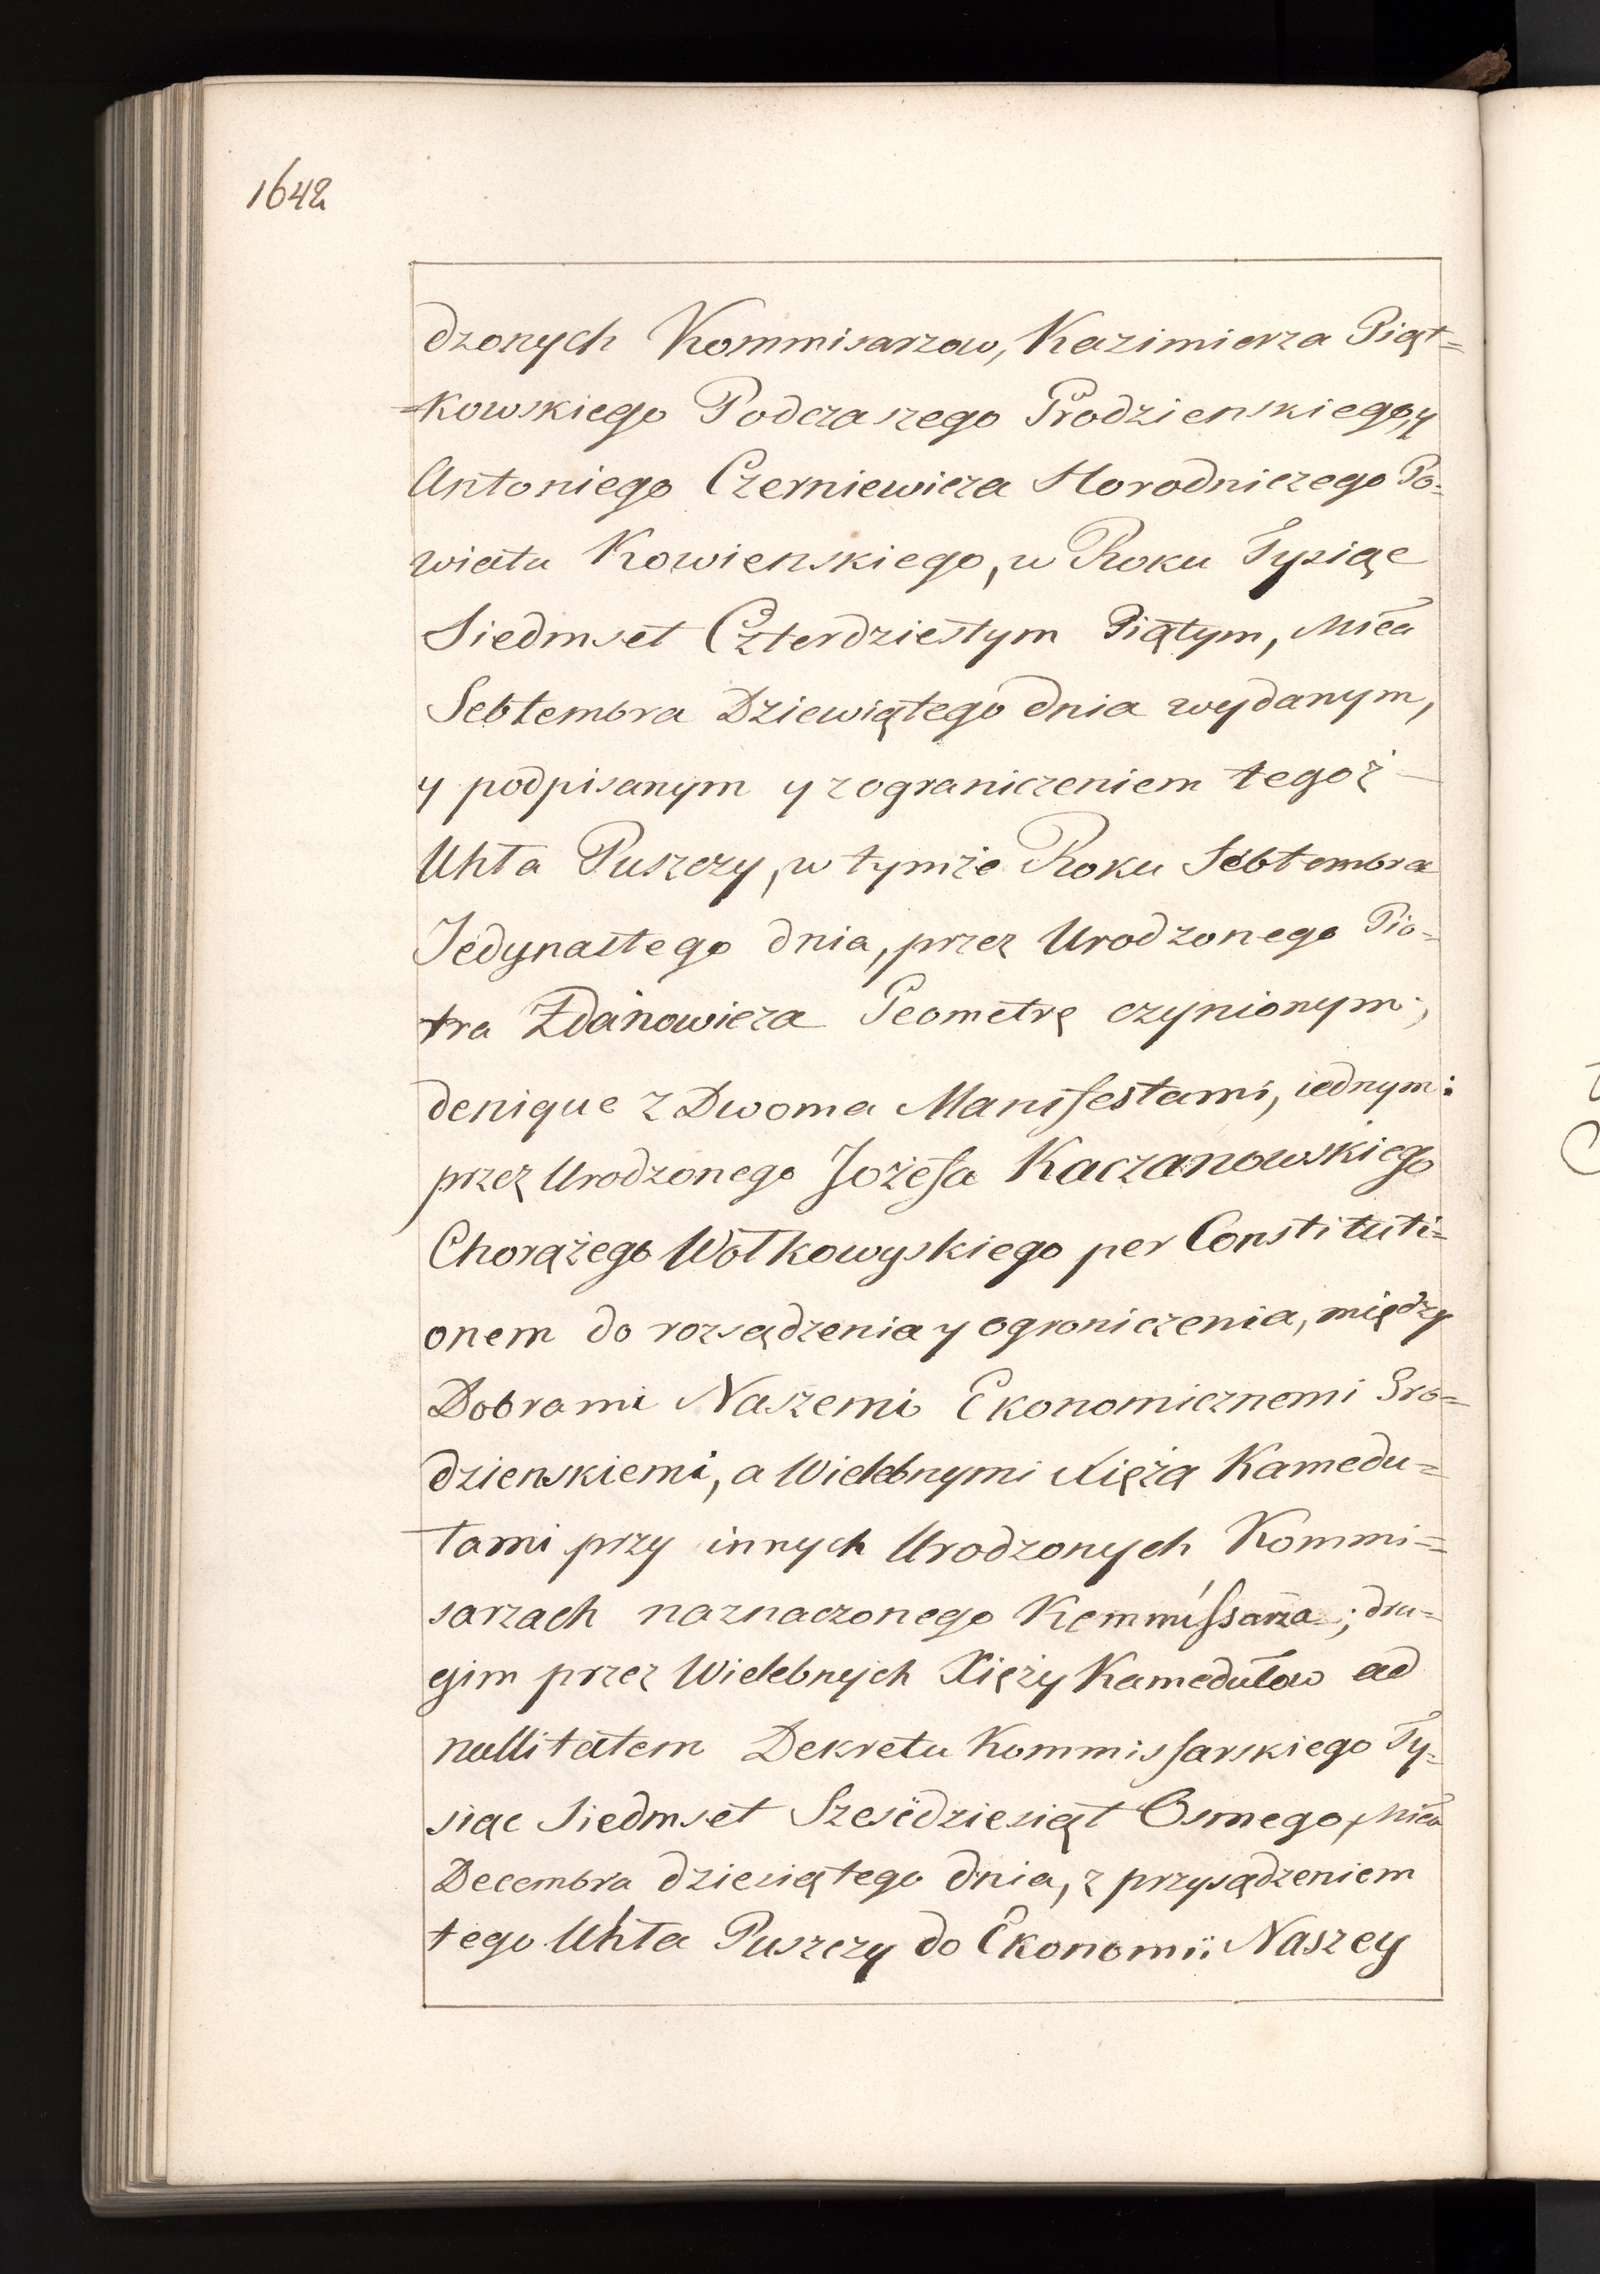 1642
dzonych Kommisarzow, Kazimierza Piąt=
=kowskiego Podczaszego Grodzienskiego, y
Antoniego Czerniewicza Horodniczego Po=
wiatu Kowienskiego, w Roku Tysiąc
Siedmset Czterdziestym Piątym, Mĉa
Sebtembra Dziewiątego dnia wydanym,
y podpisanym y z ograniczeniem tegoż
Uhła Puszczy, w tymże Roku Sebtembra
Jedynastego dnia, przez Urodzonego Pio=
tra Zdanowicza Geometrę czynionym;
denique z Dwoma Manifestami, iednym:
przez Urodzonego Jozefa Kaczanowskiego
Chorążego Wołkowyskiego per Constituti=
onem do rozsądzenia y ograniczenia, między
Dobrami Naszemi Ekonomicznemi Gro=
dzienskiemi, a Wielebnymi Xiężą Kamedu=
łami przy innych Urodzonych Kommi=
sarzach naznaczonego Kommissarza; dru=
gim przez Wielebnych Xięży Kamedułow ad
nullitatem Dekretu Kommissarskiego Ty=
siąc Siedmset Szesćdziesiąt Osmego, Mĉa
Decembra dziesiątego dnia, z przysądzeniem
tego Uhła Puszczy do Ekonomii Naszey